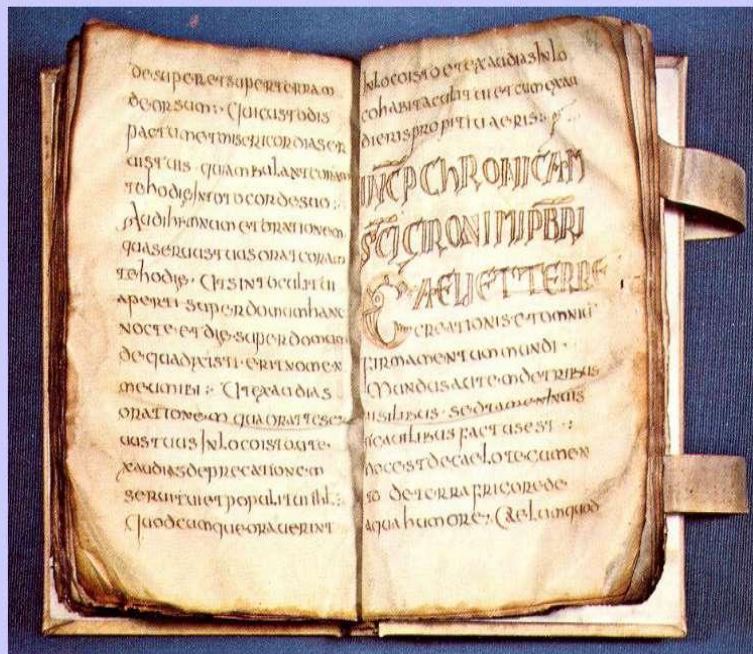 desuperetsuperterram
deorsum:· Quicustodis
pactumetmisericordiaser
uistuis· quiambulantcoram
tehodie Intotocordesuo:·
Audihimnumetorationem
quaseruustuusoratcoram
tehodie· Utsintoculitui
aperti·superdomumhanc
nocte·etdie·superdomum
dequadixisti·eritnomen
meumibi:· Utexaudias
orationem quaoratteser
uustuus Inlocoistoute
xaudiasdeprecationem
seruituietpopulituihl:·
Quodcumqueorauerint
Inlocoistoetexaudias Inlo
cohabitaculituietcumexau
dierispropitiuseris:·
INCP CHRONICAM
SCI GIRONIMI PBRI
CAELI ET TERRE
CREATIONIS· ETOMNIU
FIRMAMENTUM MUNDI·
Mundusautemdetribus
uisilibus· sedtamen
factusest:·
hocestdecaelotecumen
to deterrafricorede
aquahumore:· Caelumquod